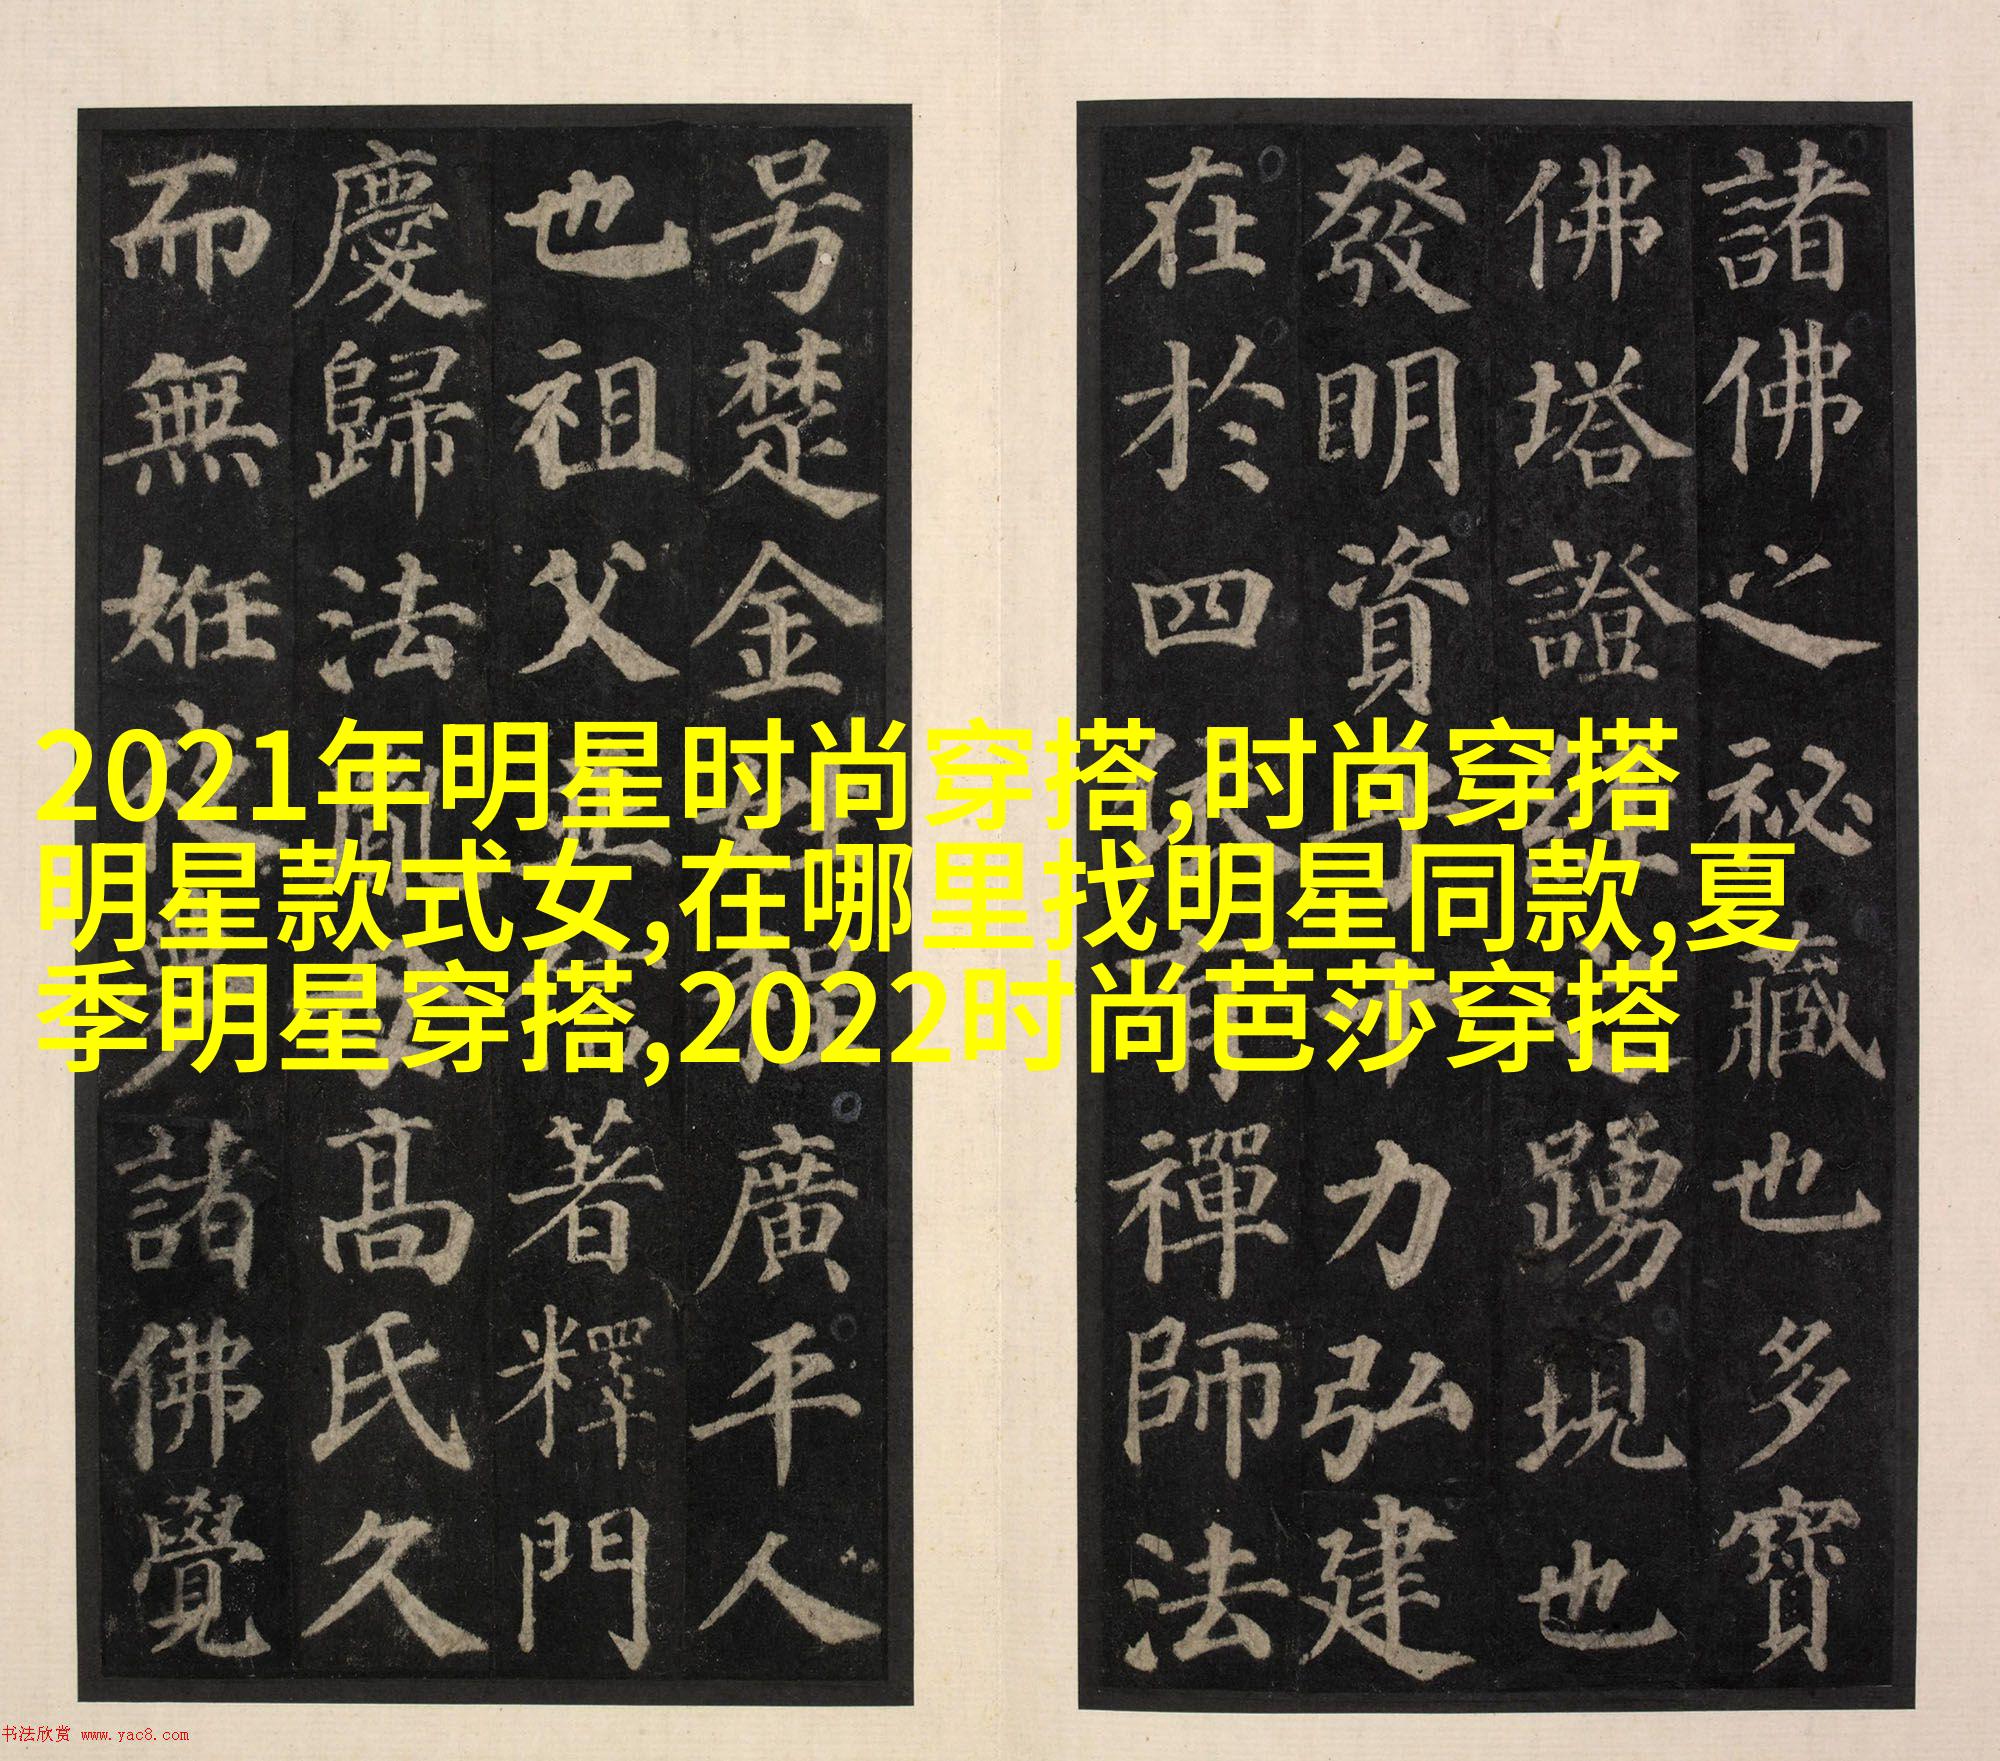 諸佛之祕藏也多寶
佛塔證經之踴現也
發明資乎十力弘建
在於四依有禪師法
号楚金姓程廣平人
也祖父並信著釋門
慶歸法胤母高氏久
而無姙夜夢諸佛覺
2021年明星时尚穿搭,时尚穿搭
明星款式女,在哪里找明星同款,夏
季明星穿搭,2022时尚芭莎穿搭
书法欣赏 www.yac8.com